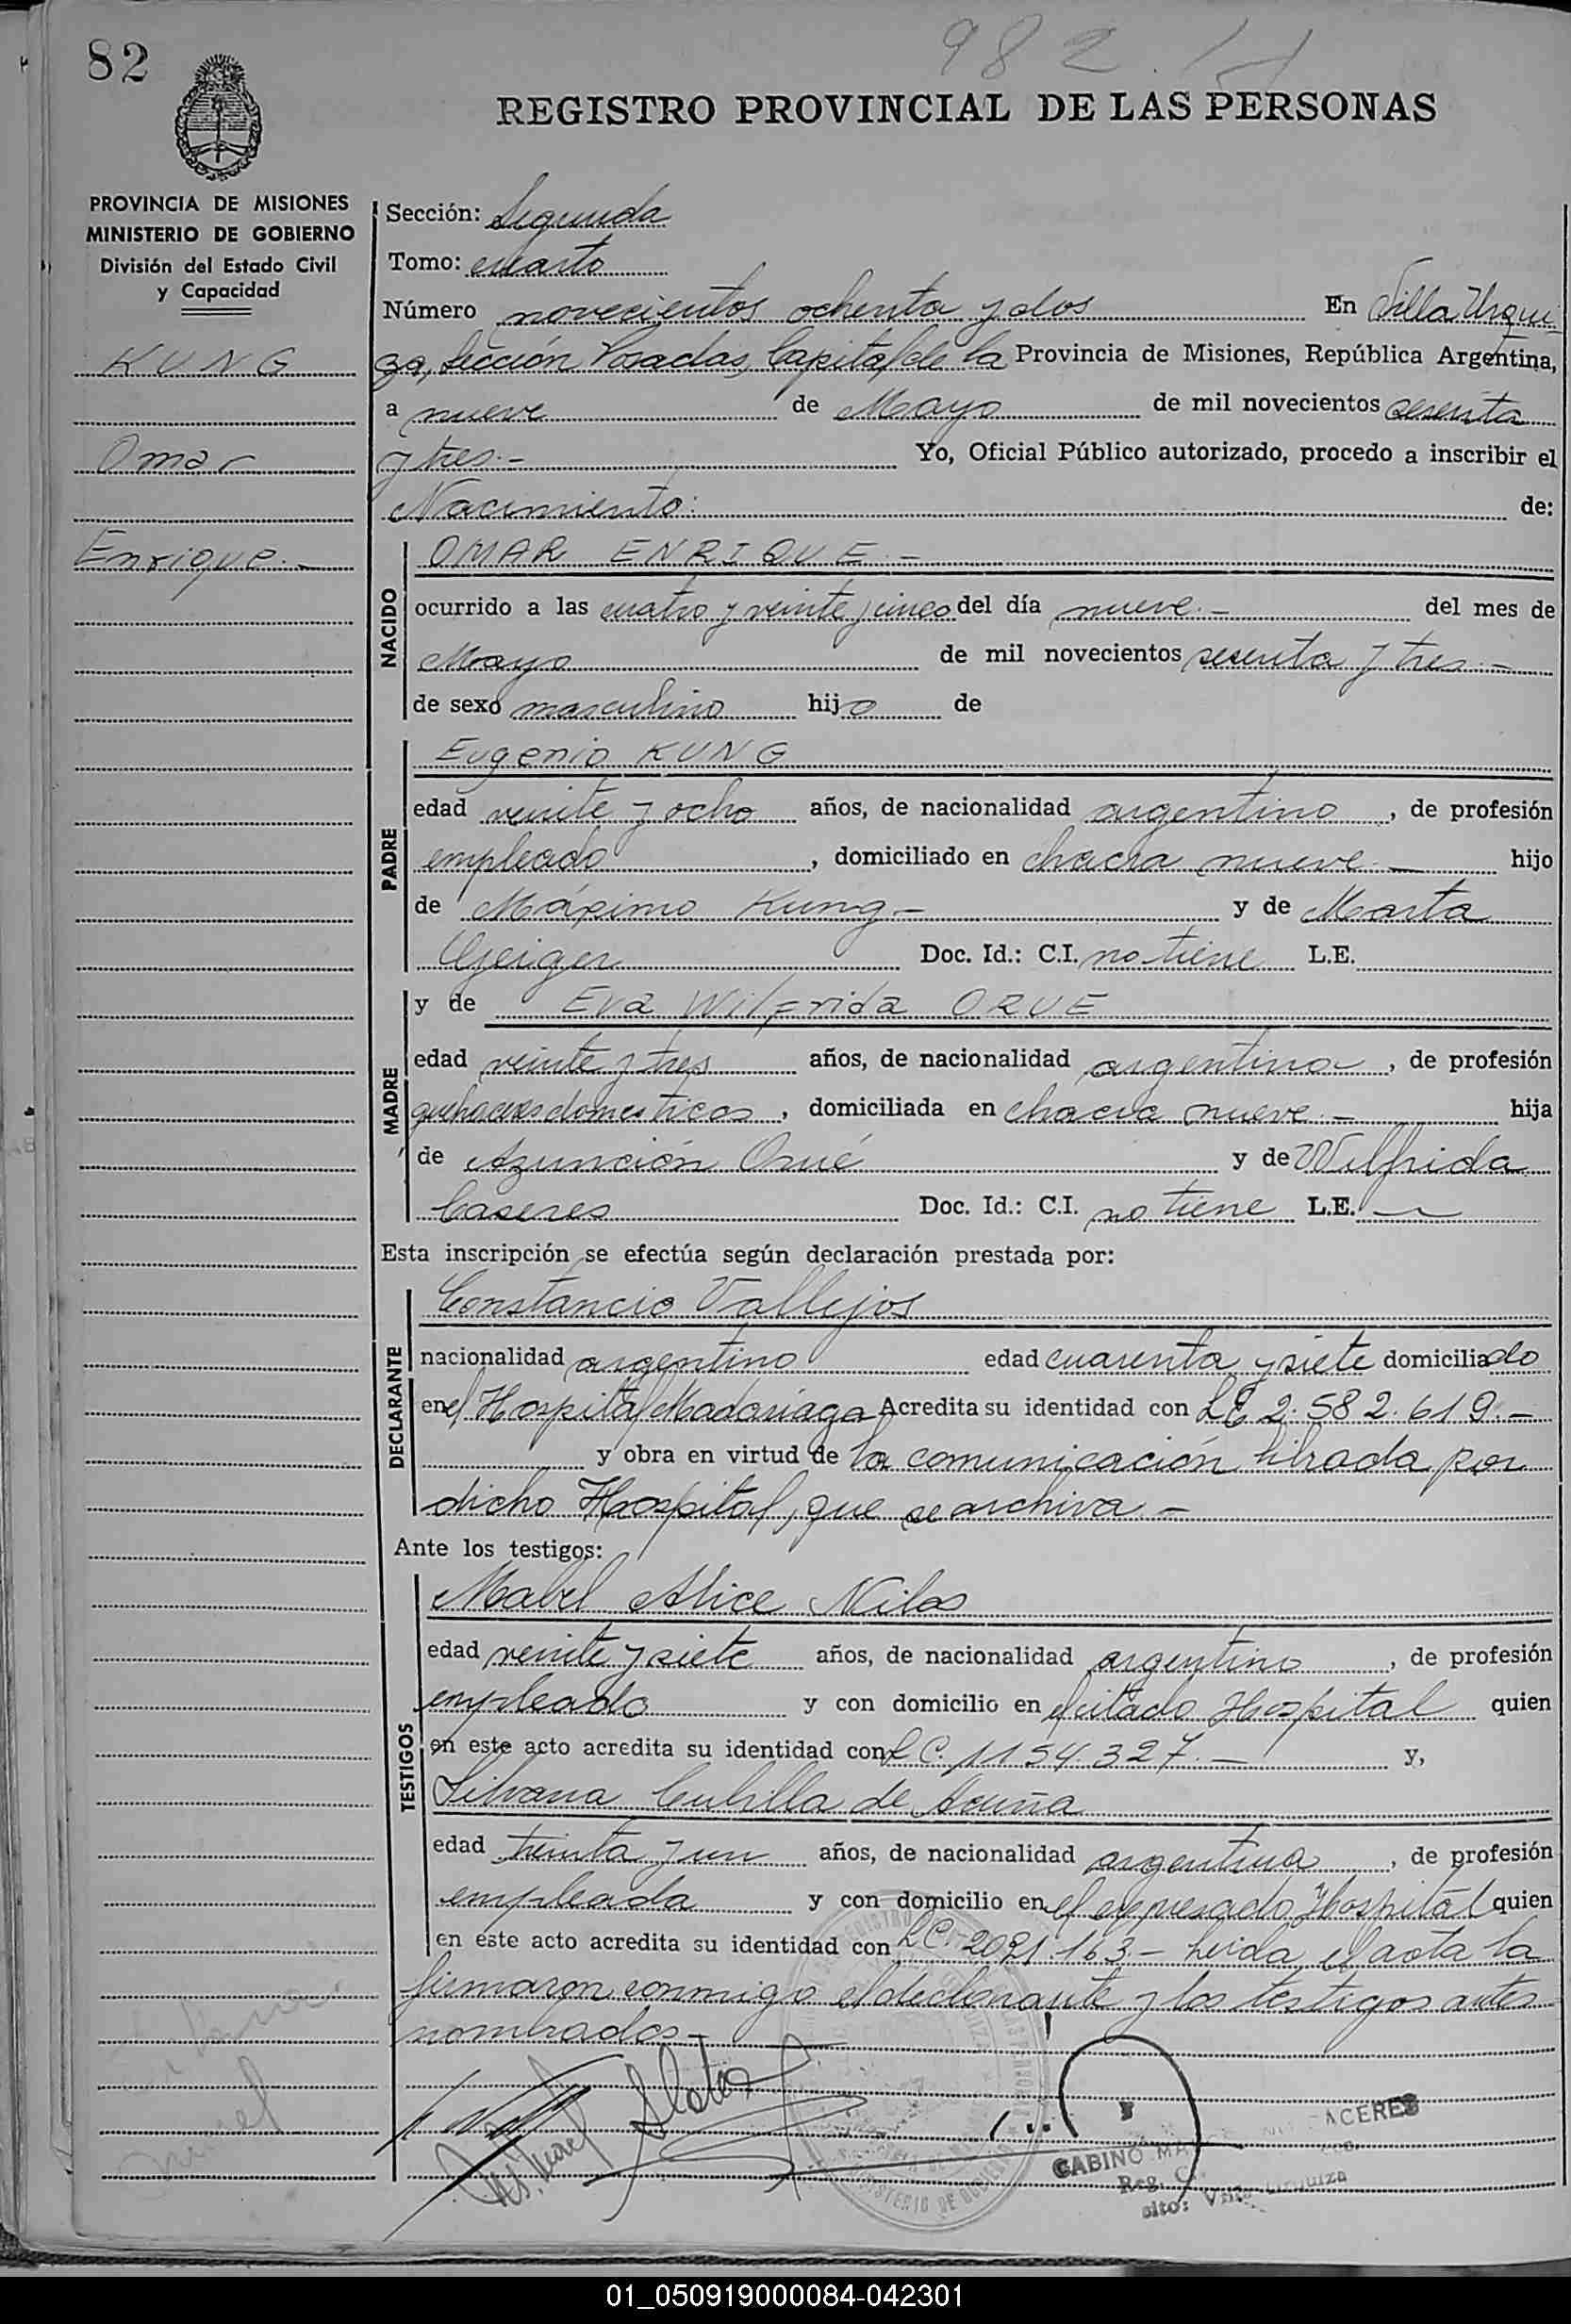 82
982
REGISTRO PROVINCIAL DE LAS PERSONAS
PROVINCIA DE MISIONES
MINISTERIO DE GOBIERNO
División del Estado Civil
y Capacidad
KUNG
Omar
Enrique.-
Sección: Segunda
Tomo: cuarto
Número novecientos ochenta y dos En Villa Urqui-
za, Sección Posadas, Capital de la Provincia de Misiones, República Argentina,
a nueve de Mayo de mil novecientos sesenta
y tres.- Yo, Oficial Público autorizado, procedo a inscribir el
Nacimiento: de:
NACIDO
OMAR ENRIQUE.-
ocurrido a las cuatro y veinte y cinco del día nueve.- del mes de
Mayo de mil novecientos sesenta y tres.-
de sexo masculino hijo de
PADRE
Eugenio KUNG
edad veinte y ocho años, de nacionalidad argentino, de profesión
empleado, domiciliado en chacra nueve.- hijo
de Máximo Kung.- y de Marta
Geiger Doc. Id.: C.I. no tiene L.E.
MADRE
y de Eva Wilfrida ORUE
edad veinte y tres años, de nacionalidad argentina, de profesión
quehaceres domesticos, domiciliada en chacra nueve.- hija
de Azunción Orué y de Wilfrida
Caseres Doc. Id.: C.I. no tiene L.E. -
Esta inscripción se efectúa según declaración prestada por:
DECLARANTE
Constancio Vallejos
nacionalidad argentino edad cuarenta y siete domiciliado
en el Hospital Madariaga Acredita su identidad con LE 2.582.619.-
y obra en virtud de la comunicación librada por
dicho Hospital, que se archiva.-
Ante los testigos:
TESTIGOS
Mabel Alice Nilos
edad veinte y siete años, de nacionalidad argentino, de profesión
empleado y con domicilio en el citado Hospital quien
en este acto acredita su identidad con L C. 1154.327.- y,
Silvana Cubilla de Acuña
edad treinta y un años, de nacionalidad argentina, de profesión
empleada y con domicilio en el expresado Hospital quien
en este acto acredita su identidad con L C. 2021.163.- Leida el acta la
firmaron conmigo el declarante y los testigos antes
nombrados.-
GABINO CACERES
01_050919000084-042301